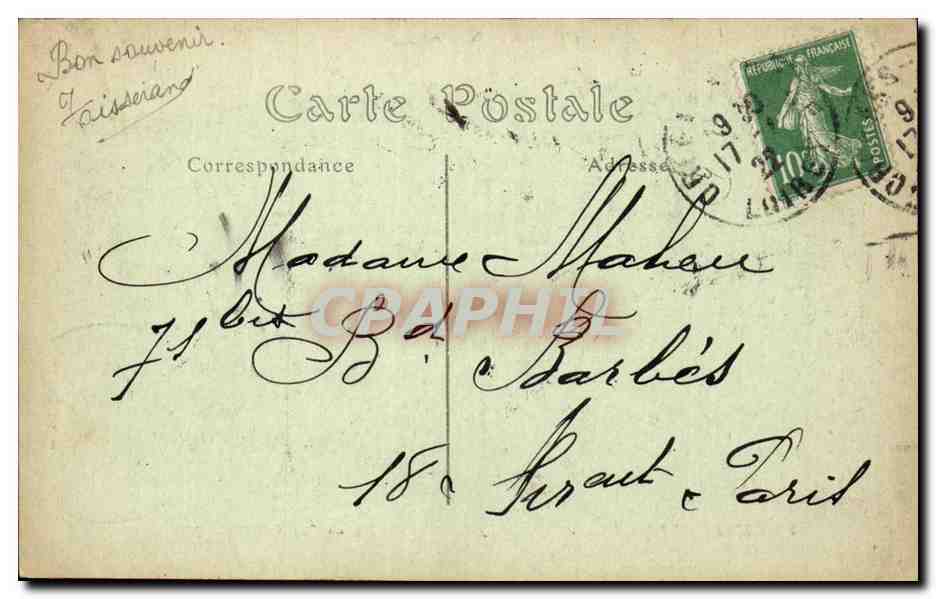 Bon souvenir.
Tisserand
Carte Postale
Correspondance
Adresse
RÉPUBLIQUE FRANÇAISE
POSTES
10c
17 9
22
LOIRE
Madame Maheu
71 bis Bd. Barbès
18e Arrt Paris
CPAPHIL